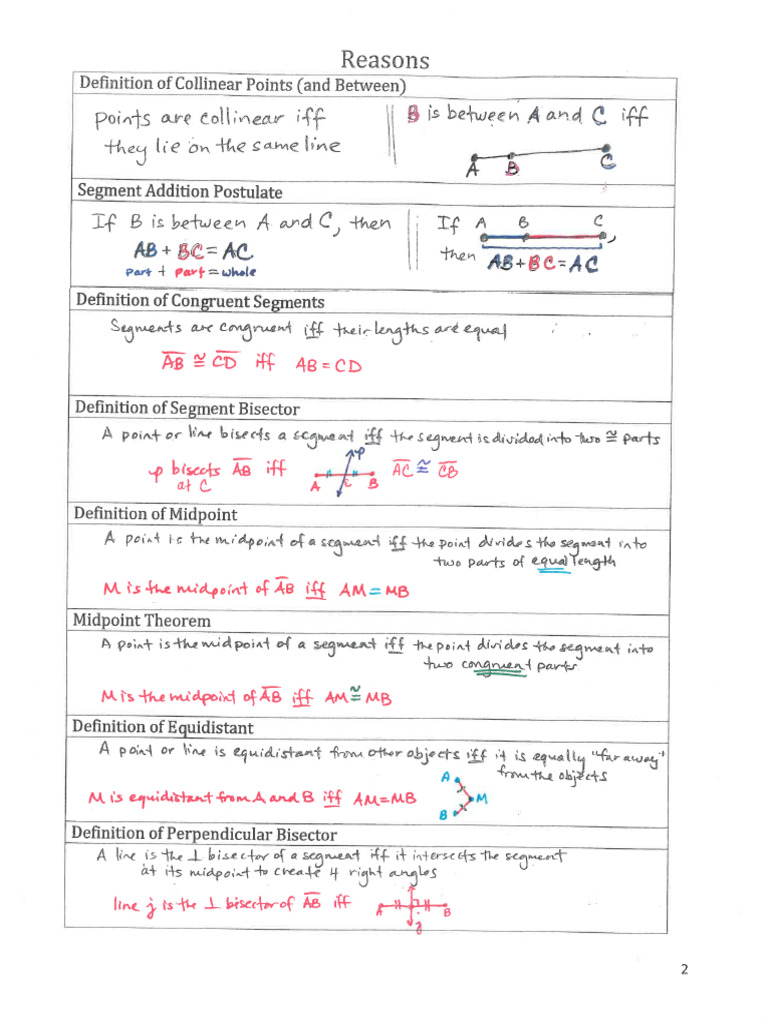 Reasons
Definition of Collinear Points (and Between)
points are collinear iff
they lie on the same line
B is between A and C iff
A B C
Segment Addition Postulate
If B is between A and C, then
AB + BC = AC
part + part = whole
If A B C ,
then AB + BC = AC
Definition of Congruent Segments
Segments are congruent iff their lengths are equal
AB ≅ CD iff AB = CD
Definition of Segment Bisector
A point or line bisects a segment iff the segment is divided into two ≅ parts
p bisects AB iff
at C
p
A C B
AC ≅ CB
Definition of Midpoint
A point is the midpoint of a segment iff the point divides the segment into
two parts of equal length
M is the midpoint of AB iff AM = MB
Midpoint Theorem
A point is the midpoint of a segment iff the point divides the segment into
two congruent parts
M is the midpoint of AB iff AM ≅ MB
Definition of Equidistant
A point or line is equidistant from other objects iff it is equally "far away"
from the objects
A
M
B
M is equidistant from A and B iff AM = MB
Definition of Perpendicular Bisector
A line is the ⊥ bisector of a segment iff it intersects the segment
at its midpoint to create 4 right angles
line j is the ⊥ bisector of AB iff
A B
j
2